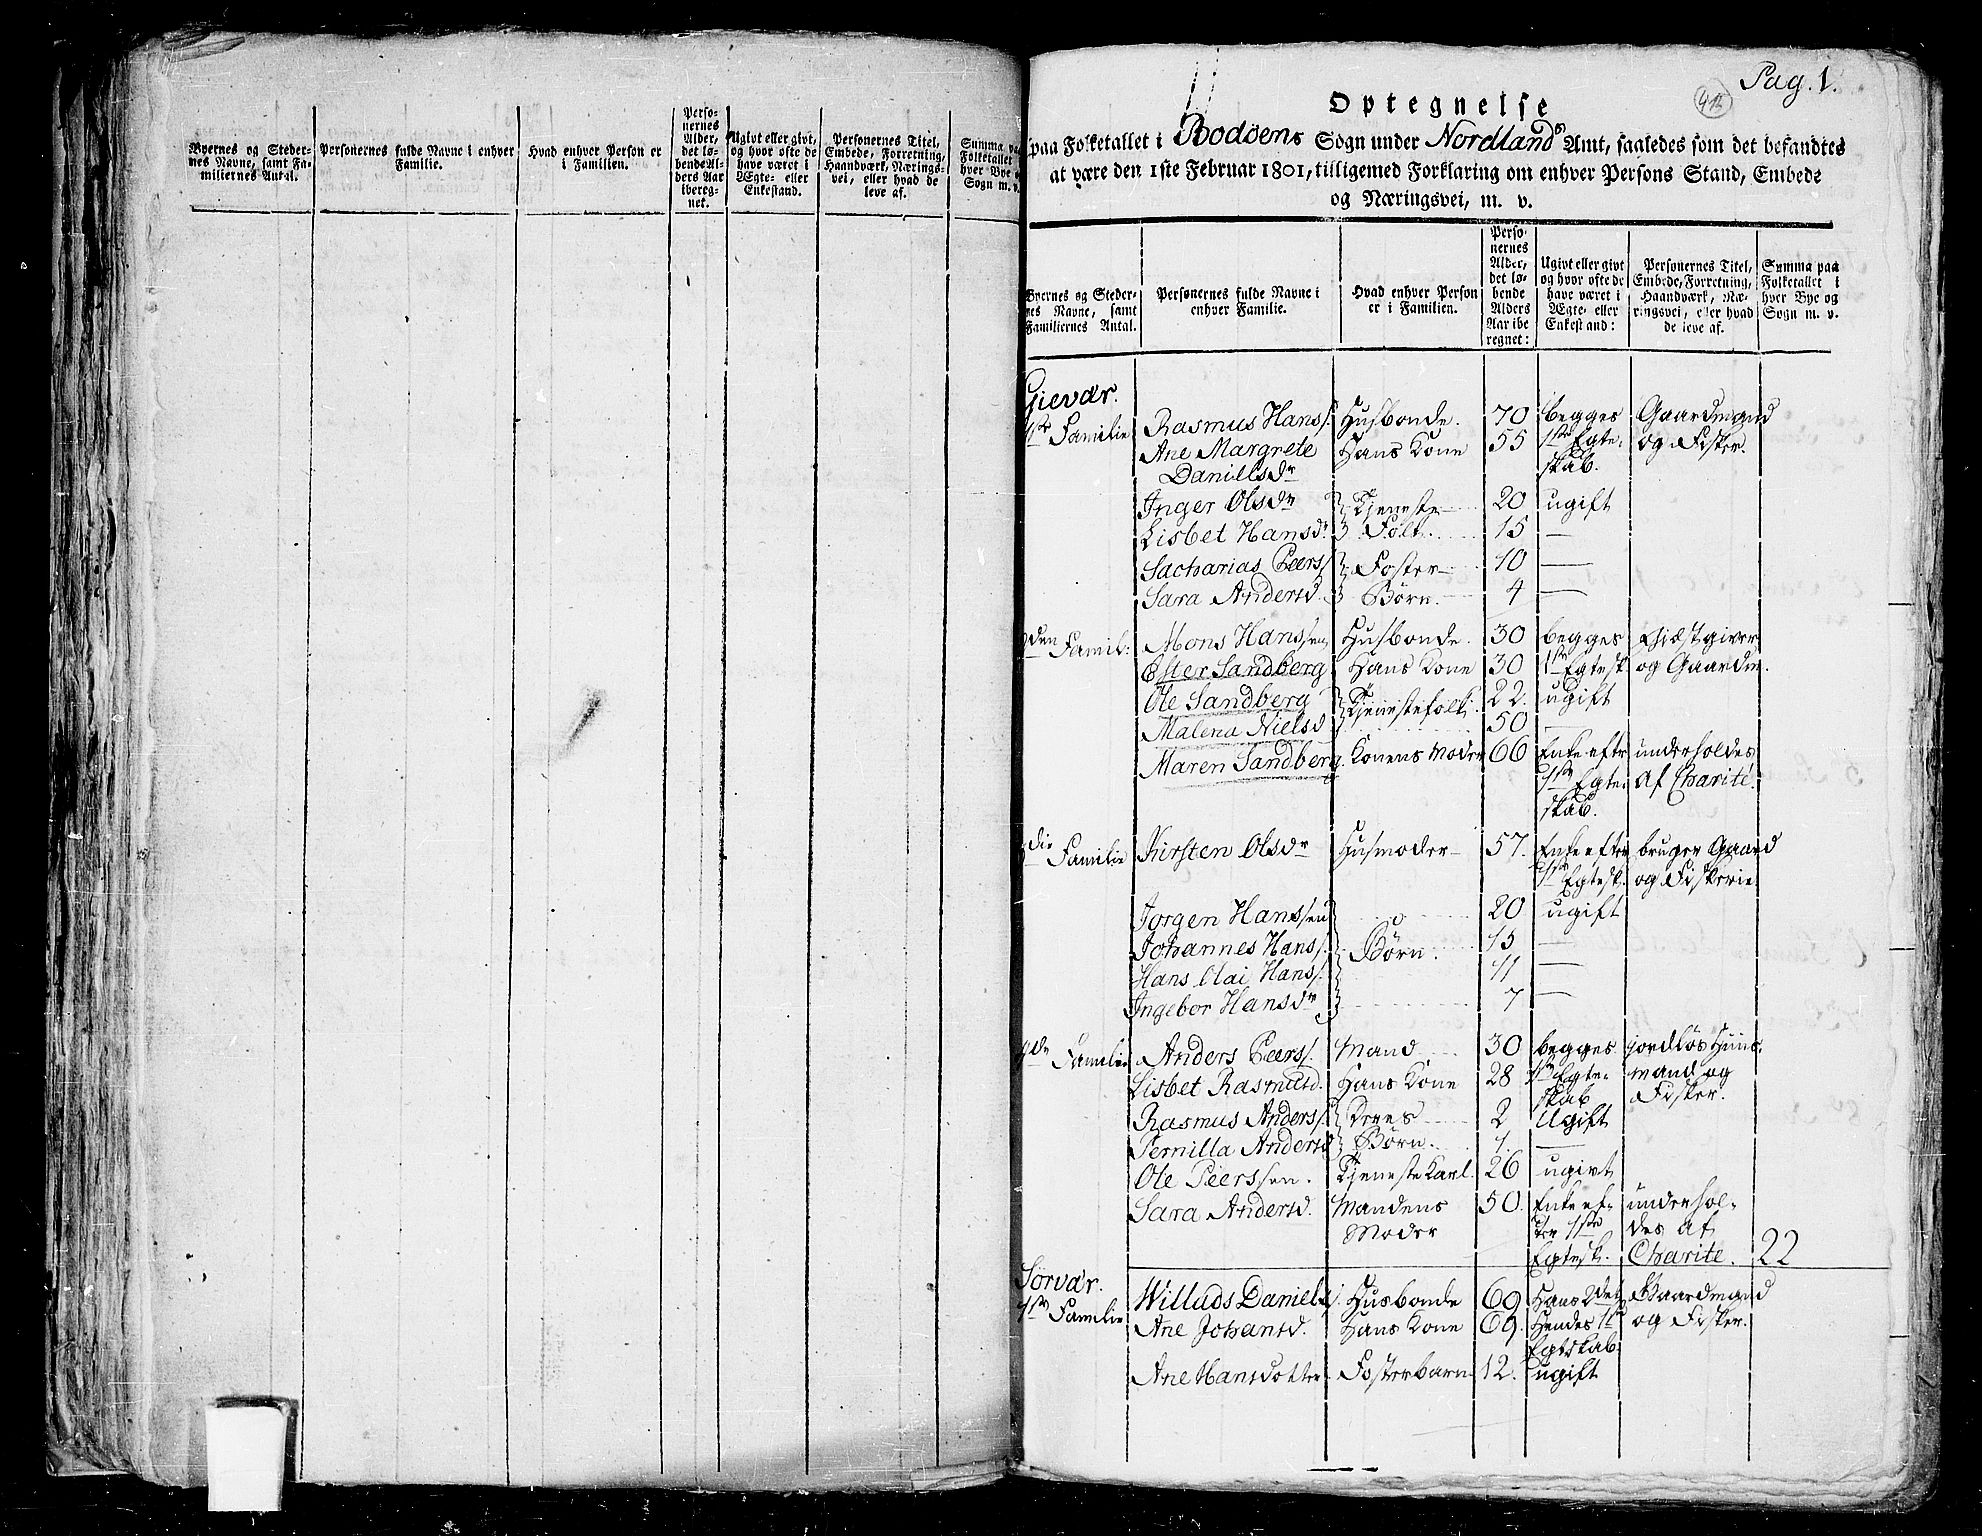 Byernes og Steder-
nes Navne, samt Fa-
miliernes Antal.
Personernes fulde Navne i enhver
Familie.
Hvad enhver Person er
i Familien.
Perso-
nernes
Alder,
det lø-
bende Al-
ders Aar
ibereg-
net.
Ugivt eller givt,
og hvor ofte de
have været i
Ægte- eller
Enkestand.
Personernes Titel,
Embede, Forretning,
Haandværk, Nærings-
vei, eller hvad de
leve af.
Summa paa
Folketallet
hver Bye
Sogn m. v.
Pag. 1.
Optegnelse
paa Folketallet i Bodöens Sogn under Nordlands Amt, saaledes som det befandtes
at være den 1ste Februar 1801, tilligemed Forklaring om enhver Persons Stand, Embede
og Næringsvei, m. v.
Byernes og Steder-
nes Navne, samt
Familiernes Antal.
Personernes fulde Navne i
enhver Familie.
Hvad enhver Person
er i Familien.
Perso-
nernes
Alder,
det lø-
bende
Alders
Aar ibe
regnet:
Ugivt eller givt
og hvor ofte de
have været i
Ægte- eller
Enkestand:
Personernes Titel,
Embede, Forretning,
Haandværk, Næ-
ringsvei, eller hvad
de leve af.
Summa paa
Folketallet i
hver Bye og
Sogn m. v.
Gievær.
1ste Familie Rasmus Hanss. Husbonde. 70 begges Gaardmand
Ane Margrete Hans Kone 55 1ste Egte- og Fisker.
Daniellsdr skab.
Inger Olsdr Tjeneste- 20 ugift
Lisbet Hansd. Folk. 15 —
Sacharias Peers. Foster- 10 —
Sara Andersd. Börn. 4 —
2den Famil: Mons Hanssen Husbonde. 30 begges Giæstgiver
Ester Sandberg Hans Kone 30 1ste Egtesk. og Gaardm.
Ole Sandberg Tjenestefolk. 22. ugift
Malena Nielsd 50 —
Maren Sandberg. Konens Moder 66 Enke efter underholdes
1ste Egte- af Charité.
skab.
3die Familie Kirsten Olsdr Husmoder- 57. Enke efter bruger Gaard
1ste Egtesk. og Fiskerie
Jorgen Hanssen 20 ugift
Johannes Hanss. Börn. 15 —
Hans Olai Hanss. 11 —
Ingebor Hansdr 7 —
4de Familie Anders Peers. Mand 30 begges jordlös Huus-
Lisbet Rasmusd. Hans Kone 28 1ste Egte- mand og
skab Fisker.
Rasmus Anders. Deres 2 Ugift
Pernilla Andersd Börn. 1. —
Ole Peerssen. Tjeneste Karl. 26 ugivt
Sara Andersd. Mandens 50. Enke ef- underhol-
Moder ter 1ste des af
Egtesk. Charite. 22
Sörvær.
1ste Familie Willads Daniels. Husbonde 69 Hans 2det Gaardmand
Ane Johansd. Hans Kone 69. Hendes 1ste og Fisker.
Egteskab.
Ane Hansdotter Fosterbarn 12. ugift